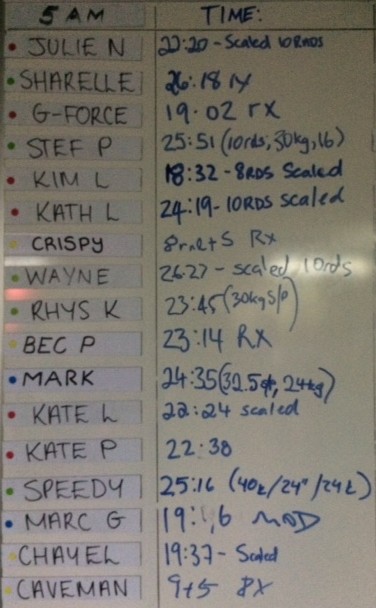 5 AM TIME:
JULIE N 22:20 - Scaled 10RNDS
SHARELLE 26:18 rx
G-FORCE 19:02 rx
STEF P 25:51 (10rds, 30kg, 16)
KIM L 18:32 - 8RDS Scaled
KATH L 24:19 - 10RDS scaled
CRISPY Rx
WAYNE 26:27 - scaled 10rds
RHYS K 23:45 (30kg S/P)
BEC P 23:14 RX
MARK 24:35 24kg)
KATE L 22:24 scaled
KATE P 22:38
SPEEDY 25:16 (40k/24"/24k)
MARC G MOD
CHAYEL 19:37 - Scaled
CAVEMAN 9+5 RX